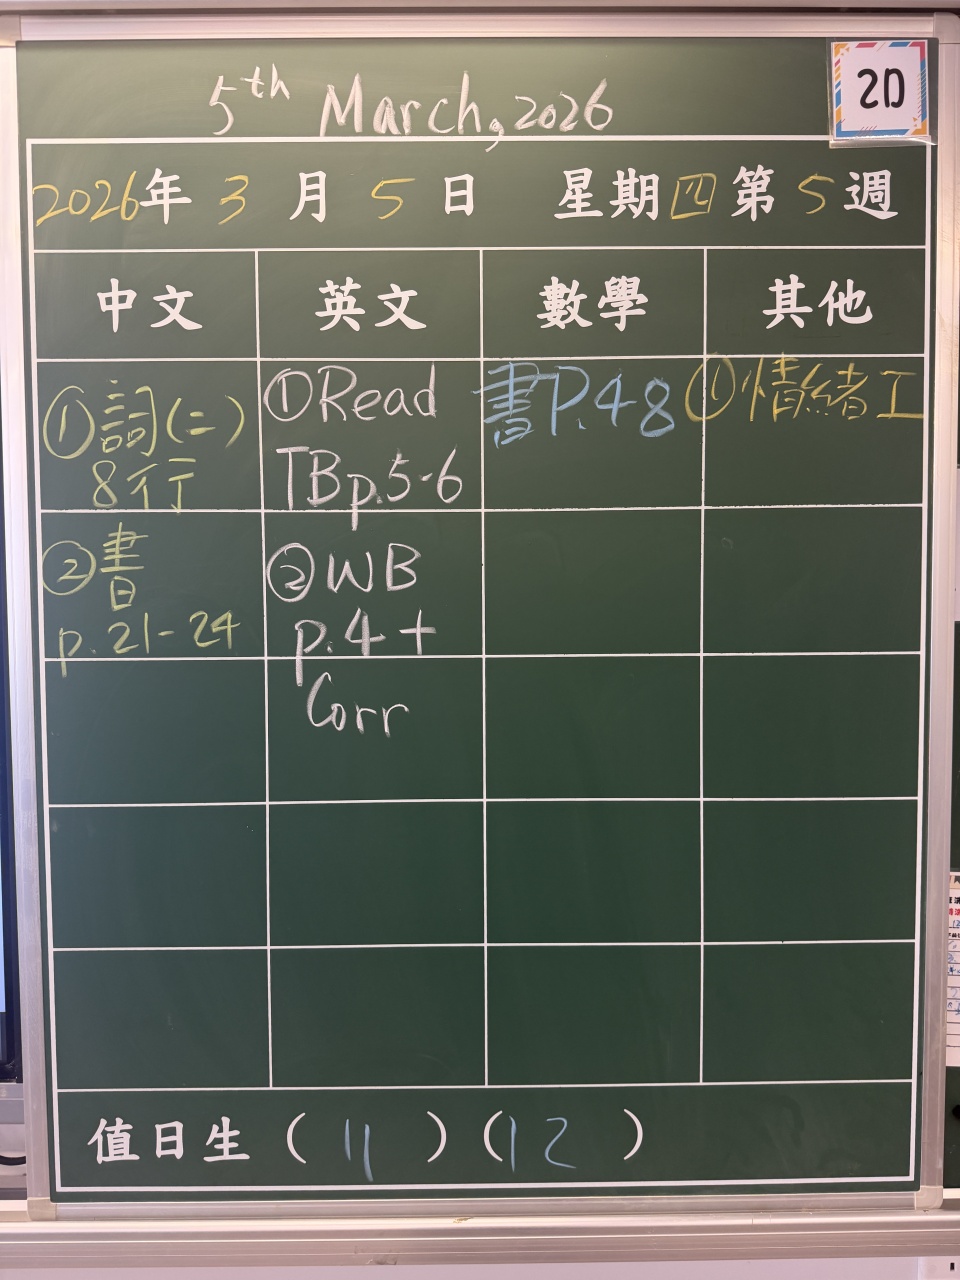 2D
5th March, 2026
2026年 3 月 5 日 星期四 第 5 週
中文 英文 數學 其他
①詞(二)
8行
①Read
TBp.5-6
書P.48
①情緒工
②書
p.21-24
②WB
p.4+
Corr
值日生 ( 11 ) ( 12 )